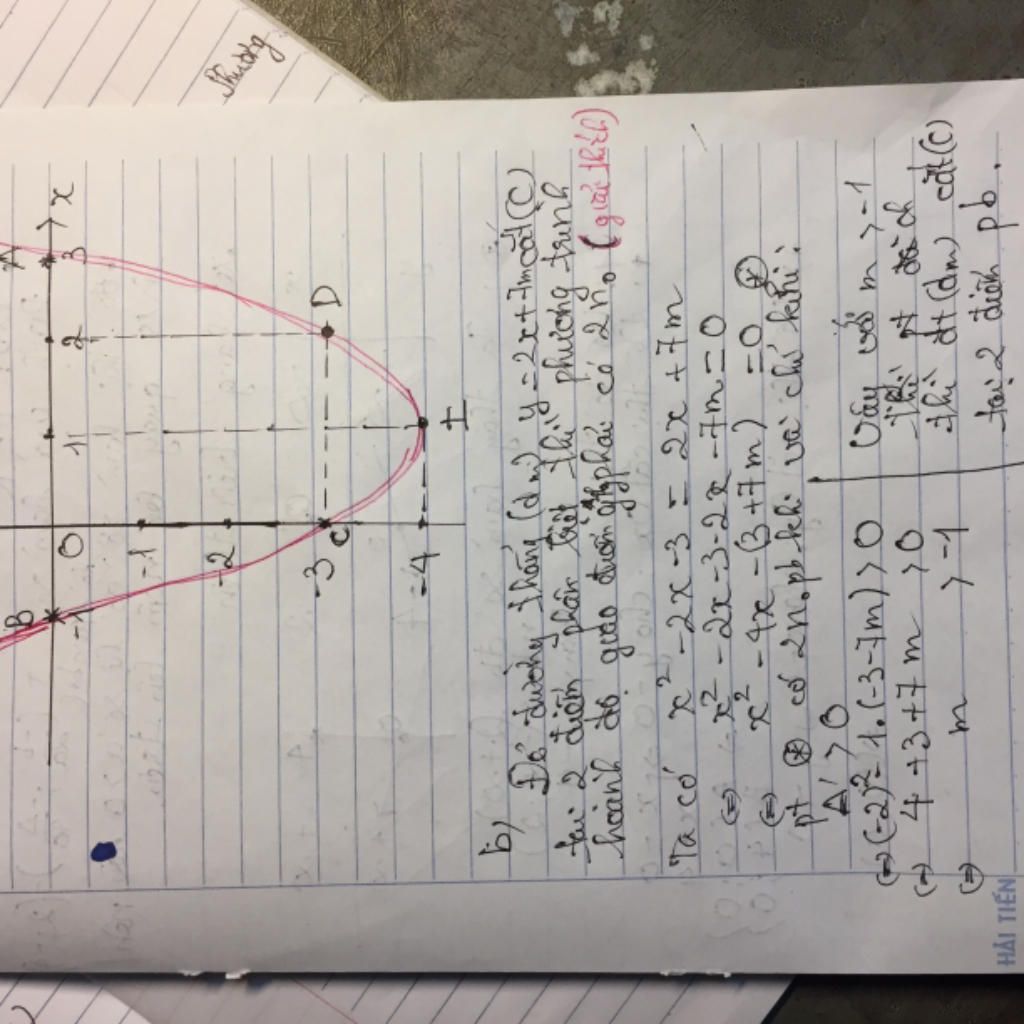 Phương
A
x
B
-1
0
1
2
3
-1
-2
-3
C
D
-4
I
b)
Để đường thẳng (dm) y = 2x + 7m cắt (C)
tại 2 điểm phân biệt thì phương trình
hoành độ giao điểm phải có 2 no (giải thích)
Ta có x² - 2x - 3 = 2x + 7m
(=) x² - 2x - 3 - 2x - 7m = 0
(=) x² - 4x - (3 + 7m) = 0 (*)
pt (*) có 2 no pb khi và chỉ khi:
Δ' > 0
(=) (-2)² - 1.(-3-7m) > 0
(=) 4 + 3 + 7m > 0
(=) m > -1
Vậy với m > -1
thì pt đã ch
thì đt (dm) cắt (C)
tại 2 điểm pb.
HẢI TIẾN